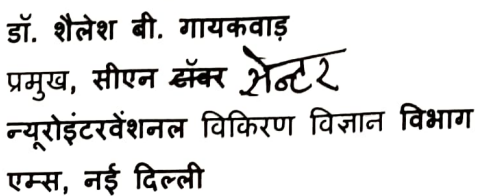 डॉ. शैलेश बी. गायकवाड़
प्रमुख, सीएन सेन्टर
न्यूरोइंटरवेंशनल विकिरण विज्ञान विभाग
एम्स, नई दिल्ली